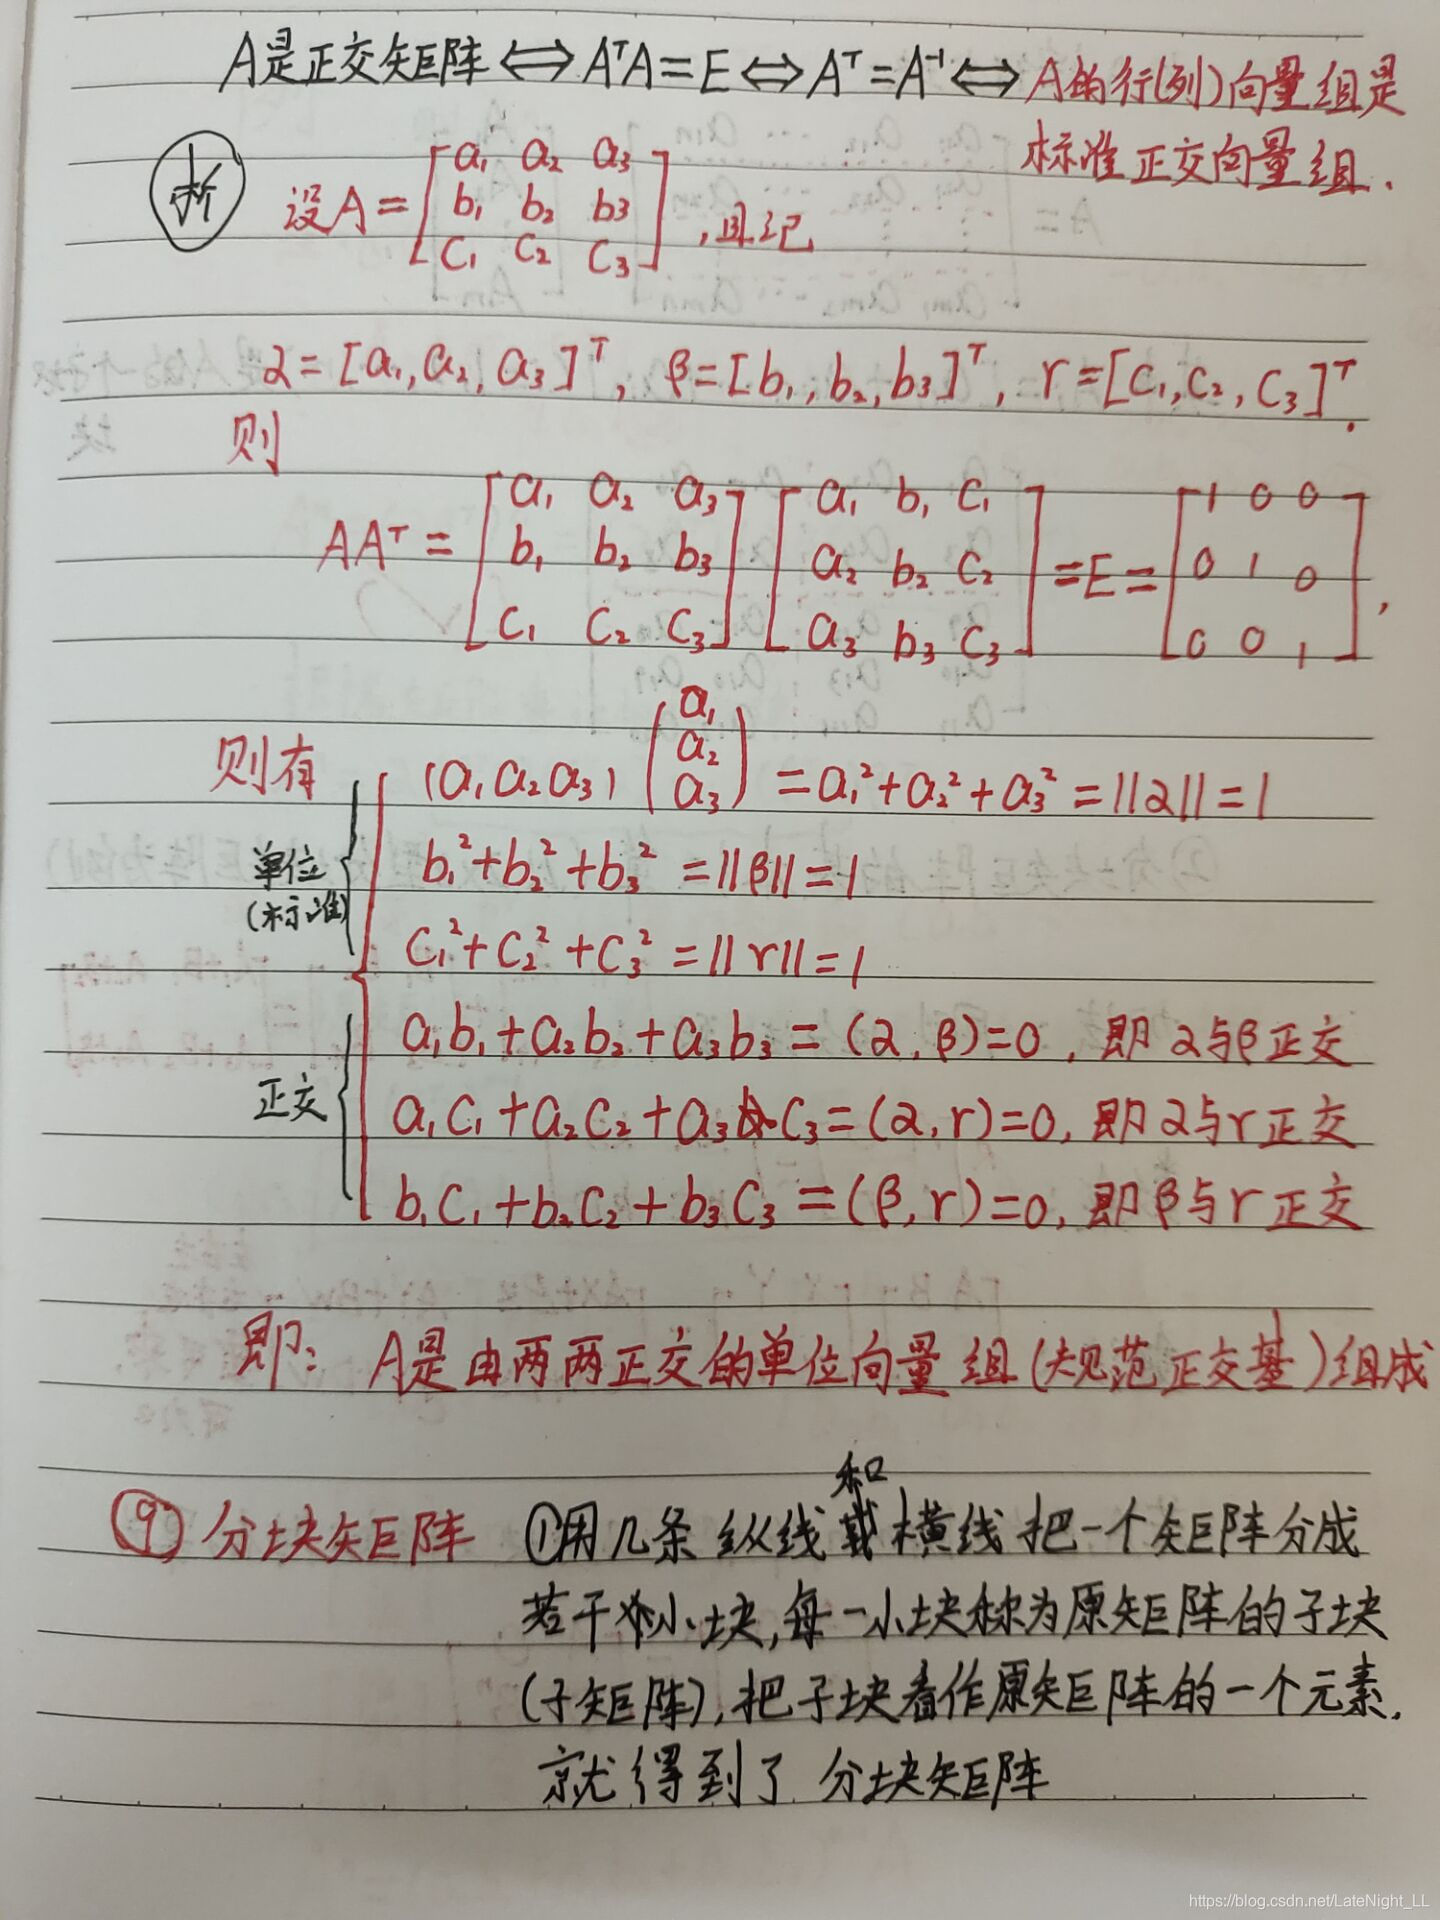 A是正交矩阵 ⟺ AᵀA=E ⟺ Aᵀ=A⁻¹ ⟺ A的行(列)向量组是
标准正交向量组.
析
设A= [a₁ a₂ a₃
b₁ b₂ b₃
c₁ c₂ c₃] ,且记
α=[a₁,a₂,a₃]ᵀ, β=[b₁,b₂,b₃]ᵀ, r=[c₁,c₂,c₃]ᵀ.
则
AAᵀ= [a₁ a₂ a₃ [a₁ b₁ c₁ [1 0 0
b₁ b₂ b₃ a₂ b₂ c₂ =E= 0 1 0
c₁ c₂ c₃] a₃ b₃ c₃] 0 0 1],
则有
(a₁ a₂ a₃) (a₁ a₂ a₃) =a₁²+a₂²+a₃²=||α||=1
单位 b₁²+b₂²+b₃²=||β||=1
(标准) c₁²+c₂²+c₃²=||r||=1
a₁b₁+a₂b₂+a₃b₃=(α,β)=0, 即α与β正交
正交 a₁c₁+a₂c₂+a₃c₃=(α,r)=0, 即α与r正交
b₁c₁+b₂c₂+b₃c₃=(β,r)=0, 即β与r正交
即: A是由两两正交的单位向量组(规范正交基)组成
⑨ 分块矩阵 ①用几条纵线和横线把一个矩阵分成
若干小块,每一小块称为原矩阵的子块
(子矩阵),把子块看作原矩阵的一个元素.
就得到了分块矩阵
https://blog.csdn.net/LateNight_LL